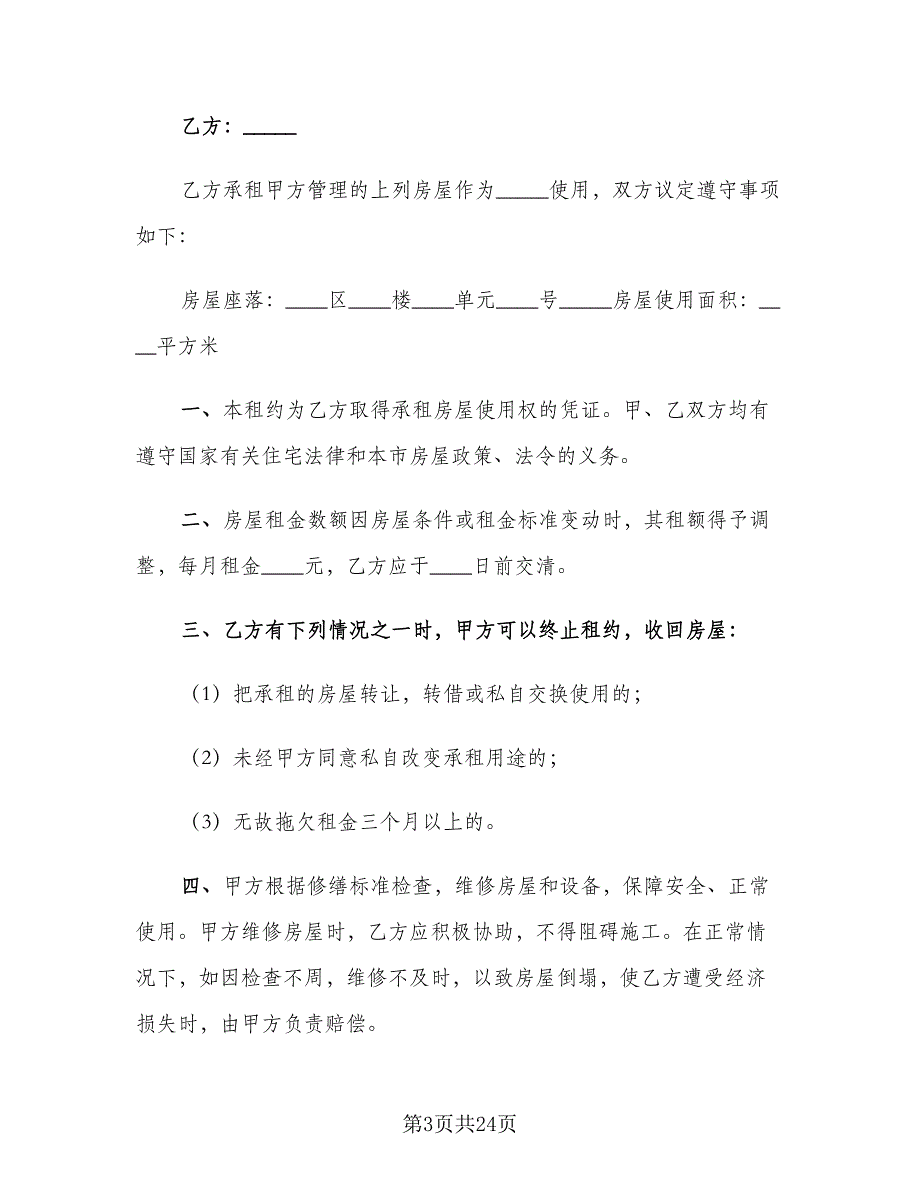 乙方：_____
乙方承租甲方管理的上列房屋作为_____使用，双方议定遵守事项
如下：
房屋座落：____区____楼____单元____号_____房屋使用面积：__
__平方米
一、本租约为乙方取得承租房屋使用权的凭证。甲、乙双方均有
遵守国家有关住宅法律和本市房屋政策、法令的义务。
二、房屋租金数额因房屋条件或租金标准变动时，其租额得予调
整，每月租金____元，乙方应于____日前交清。
三、乙方有下列情况之一时，甲方可以终止租约，收回房屋：
（1）把承租的房屋转让，转借或私自交换使用的；
（2）未经甲方同意私自改变承租用途的；
（3）无故拖欠租金三个月以上的。
四、甲方根据修缮标准检查，维修房屋和设备，保障安全、正常
使用。甲方维修房屋时，乙方应积极协助，不得阻碍施工。在正常情
况下，如因检查不周，维修不及时，以致房屋倒塌，使乙方遭受经济
损失时，由甲方负责赔偿。
第3页共24页